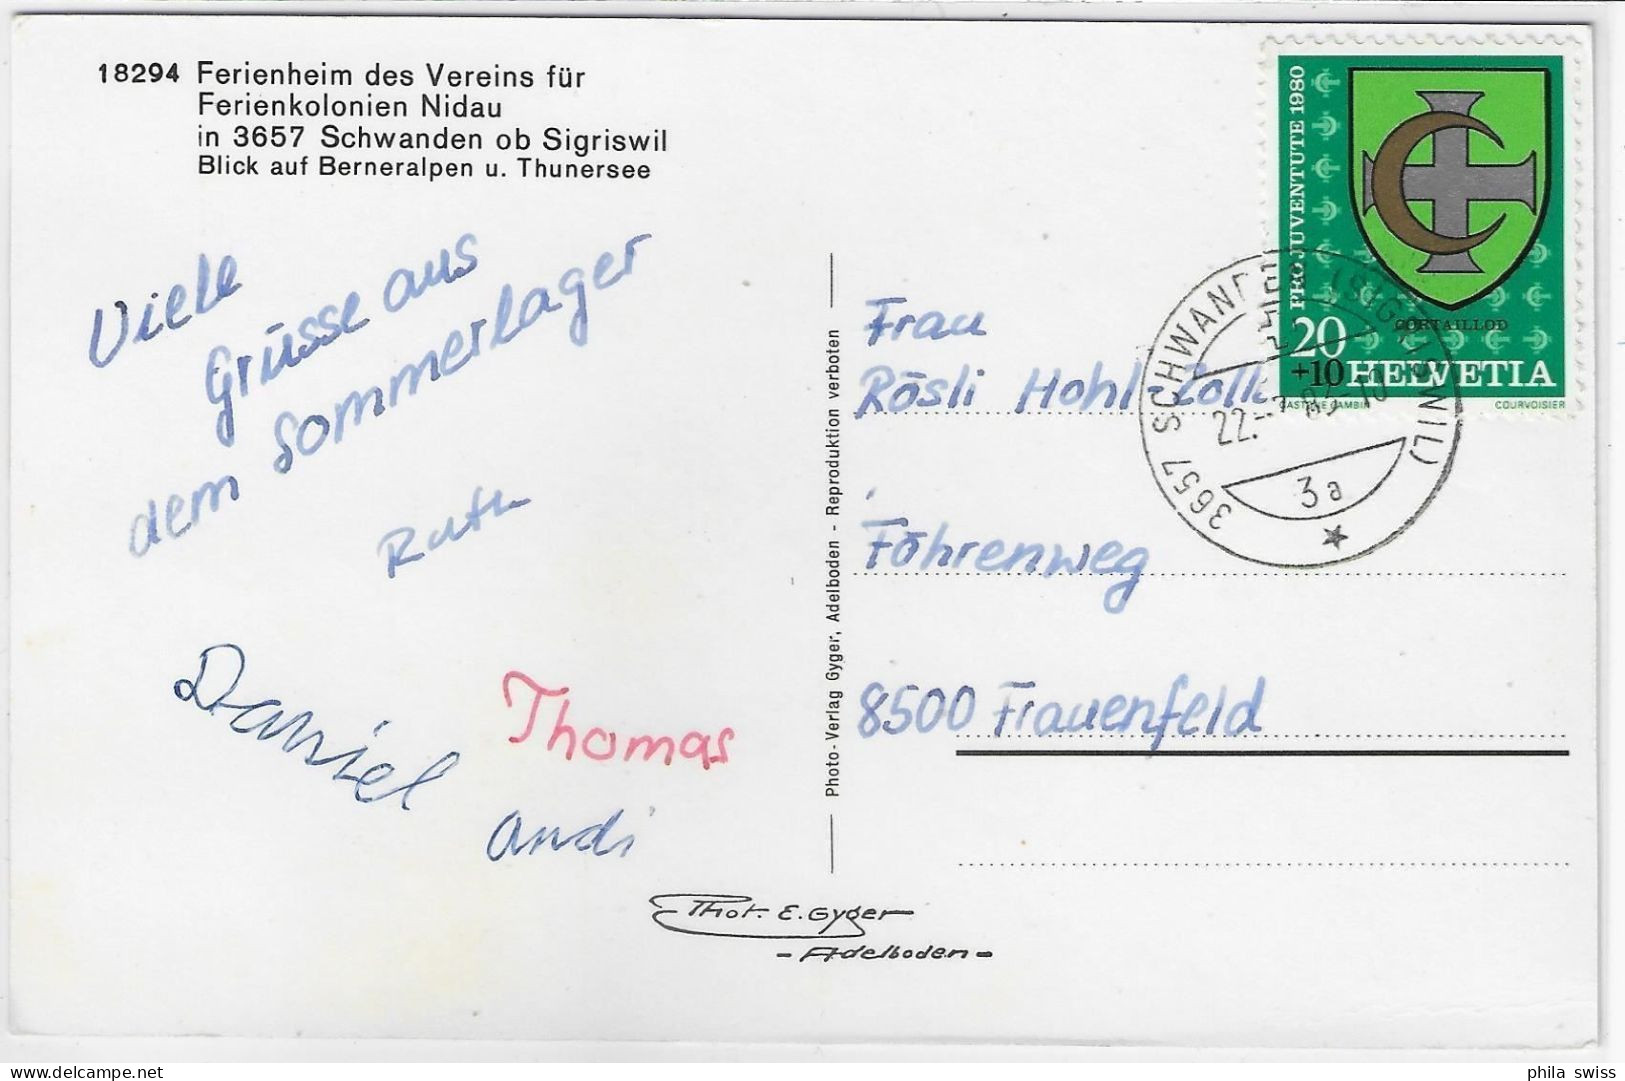 18294 Ferienheim des Vereins für
Ferienkolonien Nidau
in 3657 Schwanden ob Sigriswil
Blick auf Berneralpen u. Thunersee
Viele
Grüsse aus
dem Sommerlager
Ruth
Daniel
Thomas
Andi
Photo-Verlag Gyger, Adelboden - Reproduktion verboten
Phot. E. Gyger
- Adelboden -
PRO JUVENTUTE 1980
CORTAILLOD
20
+10 HELVETIA
GASTON E CAMBIN
COURVOISIER
3657 SCHWANDEN (SIGRISWIL)
22.
3a
Frau
Rösli Hohl-
Föhrenweg
8500 Frauenfeld
phila swiss